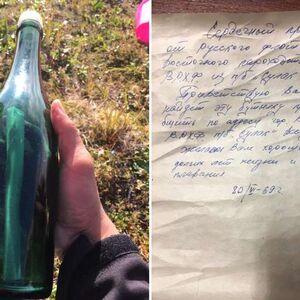 Сердечный
от русского
восточного пароходст
ВРХФ из п/б "Сулак"
Приветствую Вас
найдет эту бутылку
бщить по адресу
ВРХФ п/б Сулак
желаем Вам хорош
долгих лет жизни и
плавания
20/VI-69г